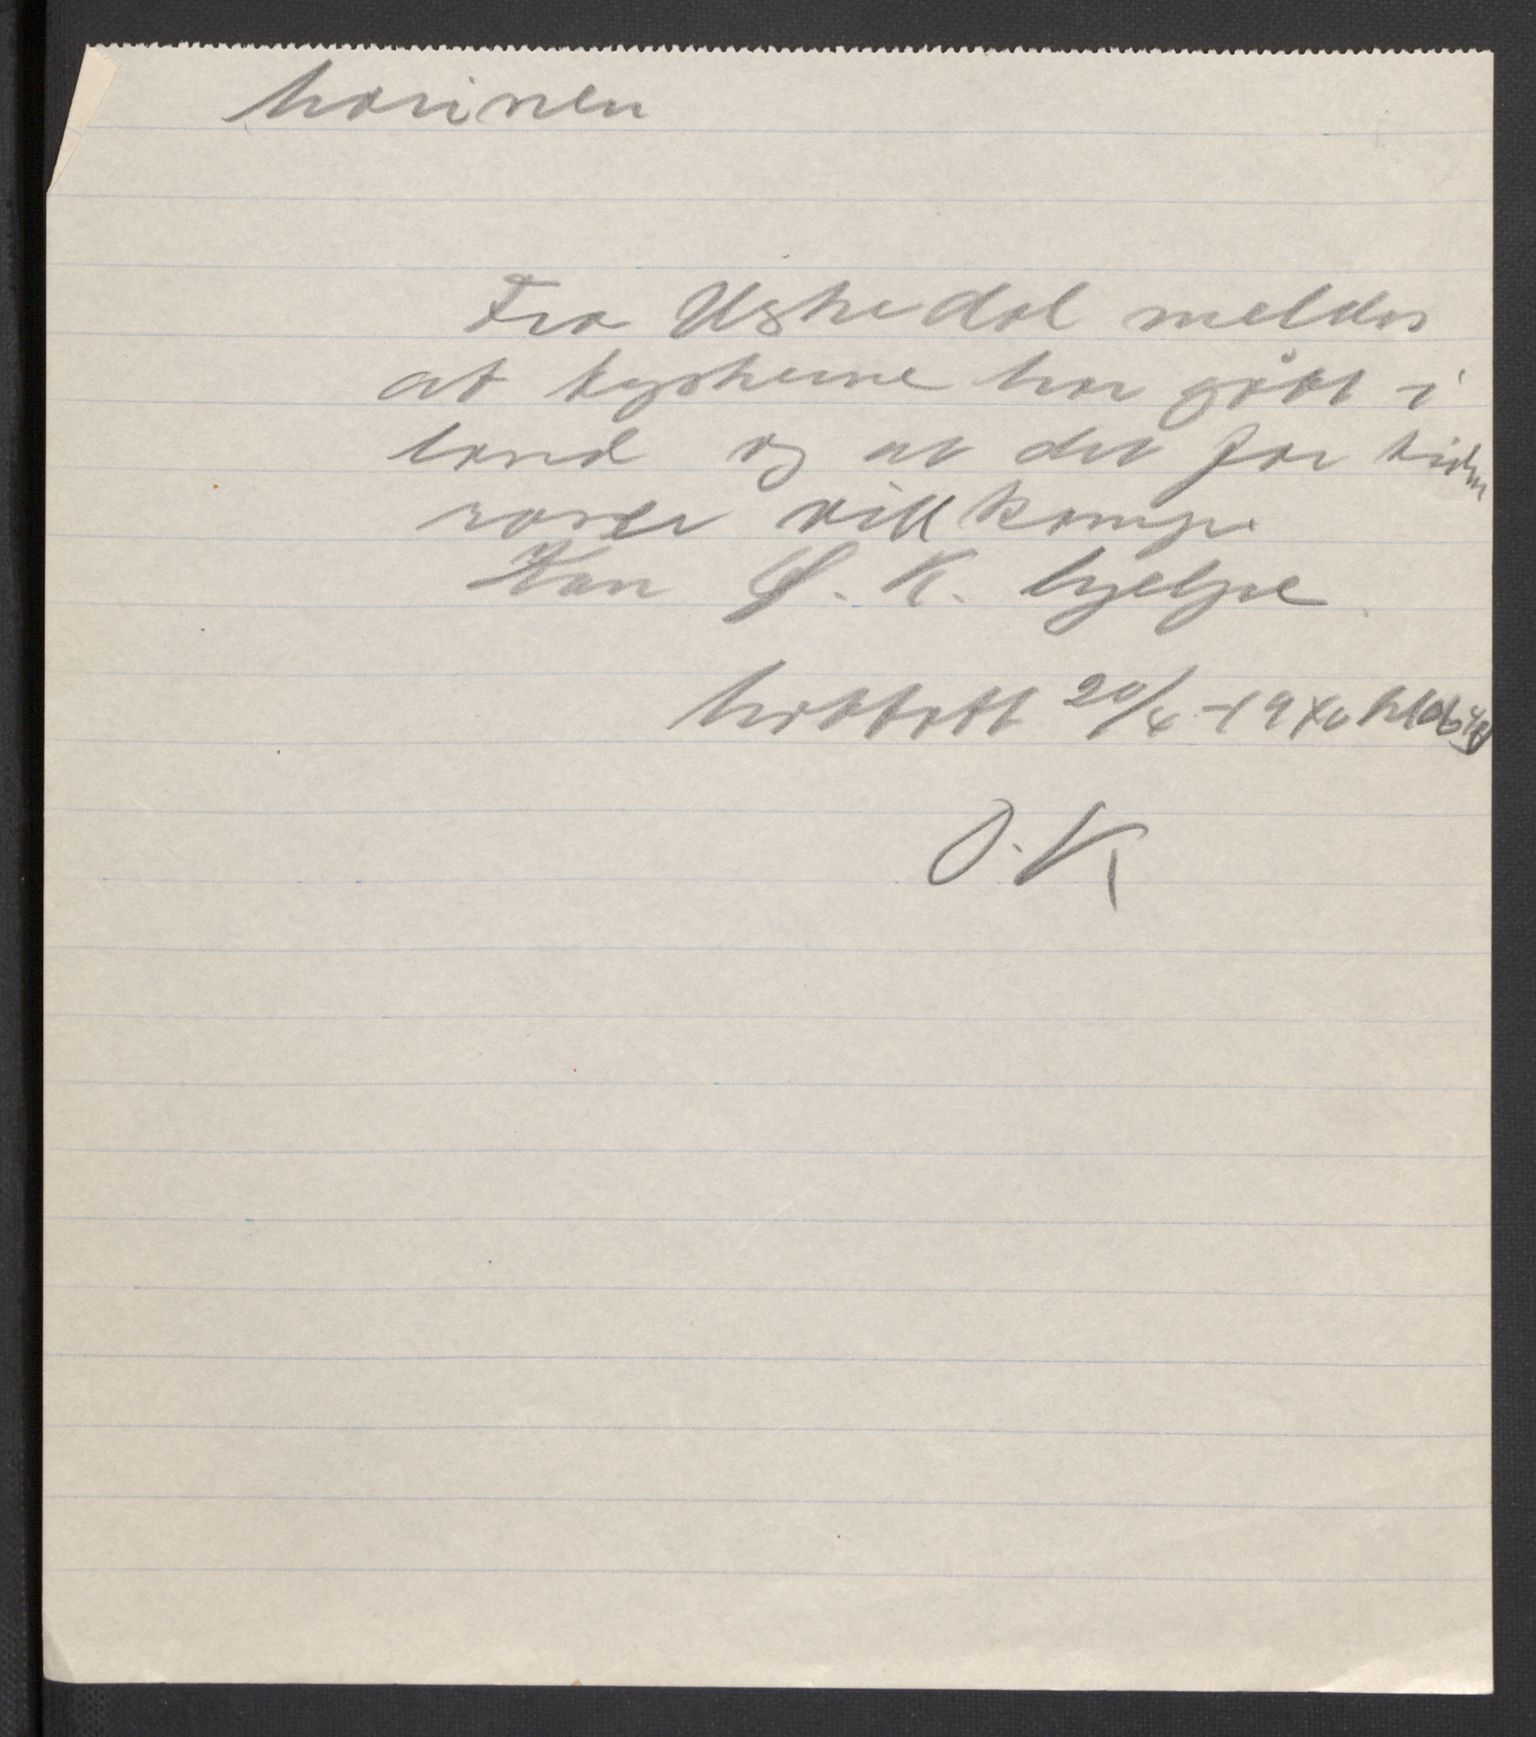 Marinen
Fra Uskedal meldes
at tyskerne har gått i
land og at det for tiden
raser vill kamp.
Kan Ø. K. hjelpe.
Mottatt 20/4-1940 kl
O.K